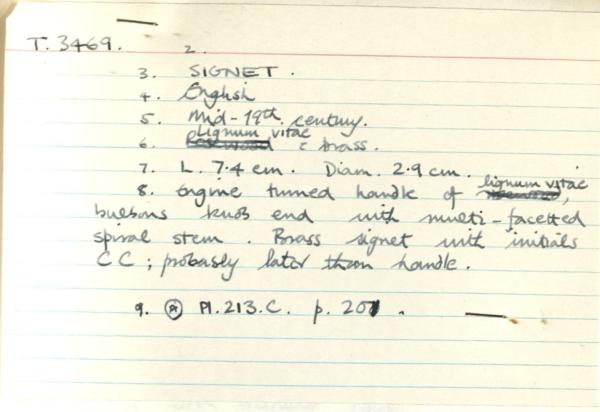 T. 3469. 2.
3. SIGNET.
4. English
5. Mid-19th. century.
Lignum vitae
6. Rosewood & brass.
7. L. 7.4 cm. Diam. 2.9 cm.
lignum vitae
8. Engine turned handle of rosewood,
bulbous knob end with multi-facetted
spiral stem. Brass signet with initials
CC; probably later than handle.
9. Pl. 213. C. p. 201.